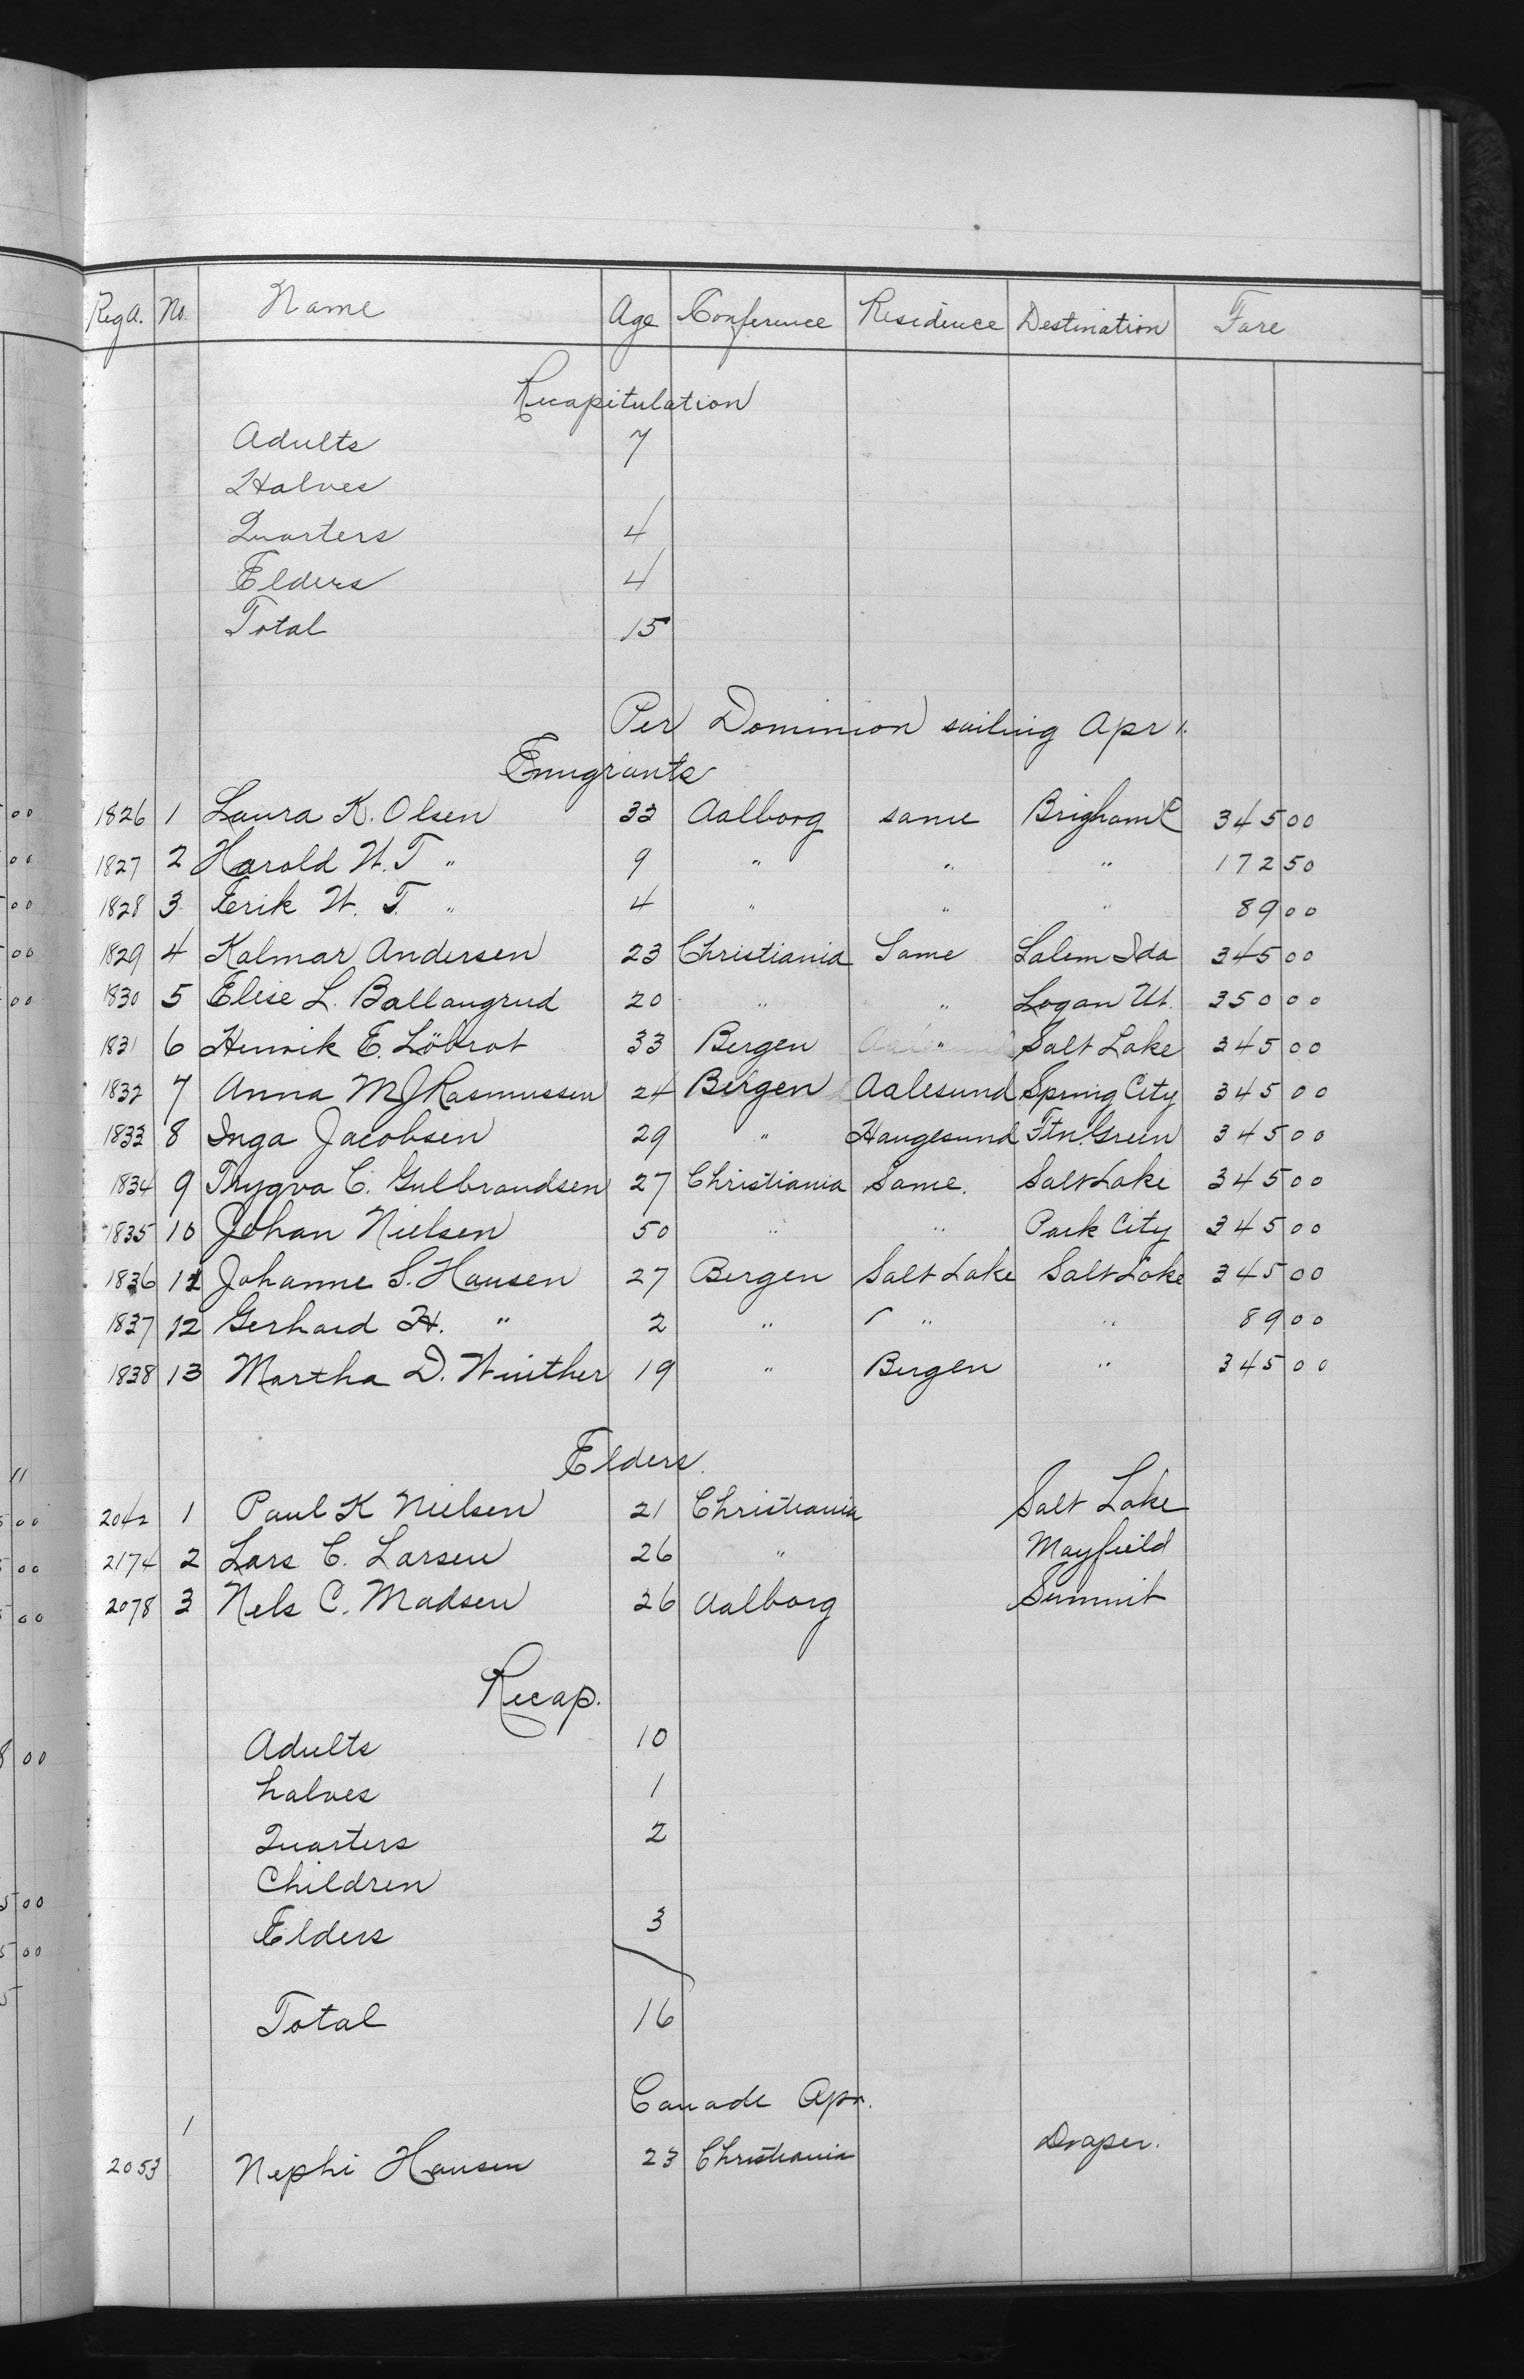 Reg a. No. Name Age Conference Residence Destination Fare
Recapitulation
Adults 7
Halves
Quarters 4
Elders 4
Total 15
Per Dominion sailing Apr 1.
Emigrants
1826 1 Laura K. Olsen 33 Aalborg same Brigham C 345 00
1827 2 Harold W. T " 9 " " " 172 50
1828 3 Erik W. T. " 4 " " " 89 00
1829 4 Kalmar Andersen 23 Christiania Same Salem Ida 345 00
1830 5 Elise L. Ballangrud 20 " " Logan Ut. 350 00
1831 6 Henrik E. Löbrot 33 Bergen " Salt Lake 345 00
1832 7 Anna M J Rasmussen 24 Bergen Aalesund Spring City 345 00
1833 8 Inga Jacobsen 29 " Haugesund Ftn. Green 345 00
1834 9 Thygva C. Gulbrandsen 27 Christiania Same. Salt Lake 345 00
1835 10 Johan Nielsen 50 " " Park City 345 00
1836 11 Johanne S. Hansen 27 Bergen Salt Lake Salt Lake 345 00
1837 12 Gerhard H. " 2 " " " 89 00
1838 13 Martha D. Winther 19 " Bergen " 345 00
Elders.
2042 1 Paul K Nielsen 21 Christiania Salt Lake
2174 2 Lars C. Larsen 26 " Mayfield
2078 3 Nels C. Madsen 26 Aalborg Summit
Recap.
Adults 10
halves 1
Quarters 2
Children
Elders 3
Total 16
Canade Apr.
1
2053 Nephi Hansen 23 Christiania Draper.